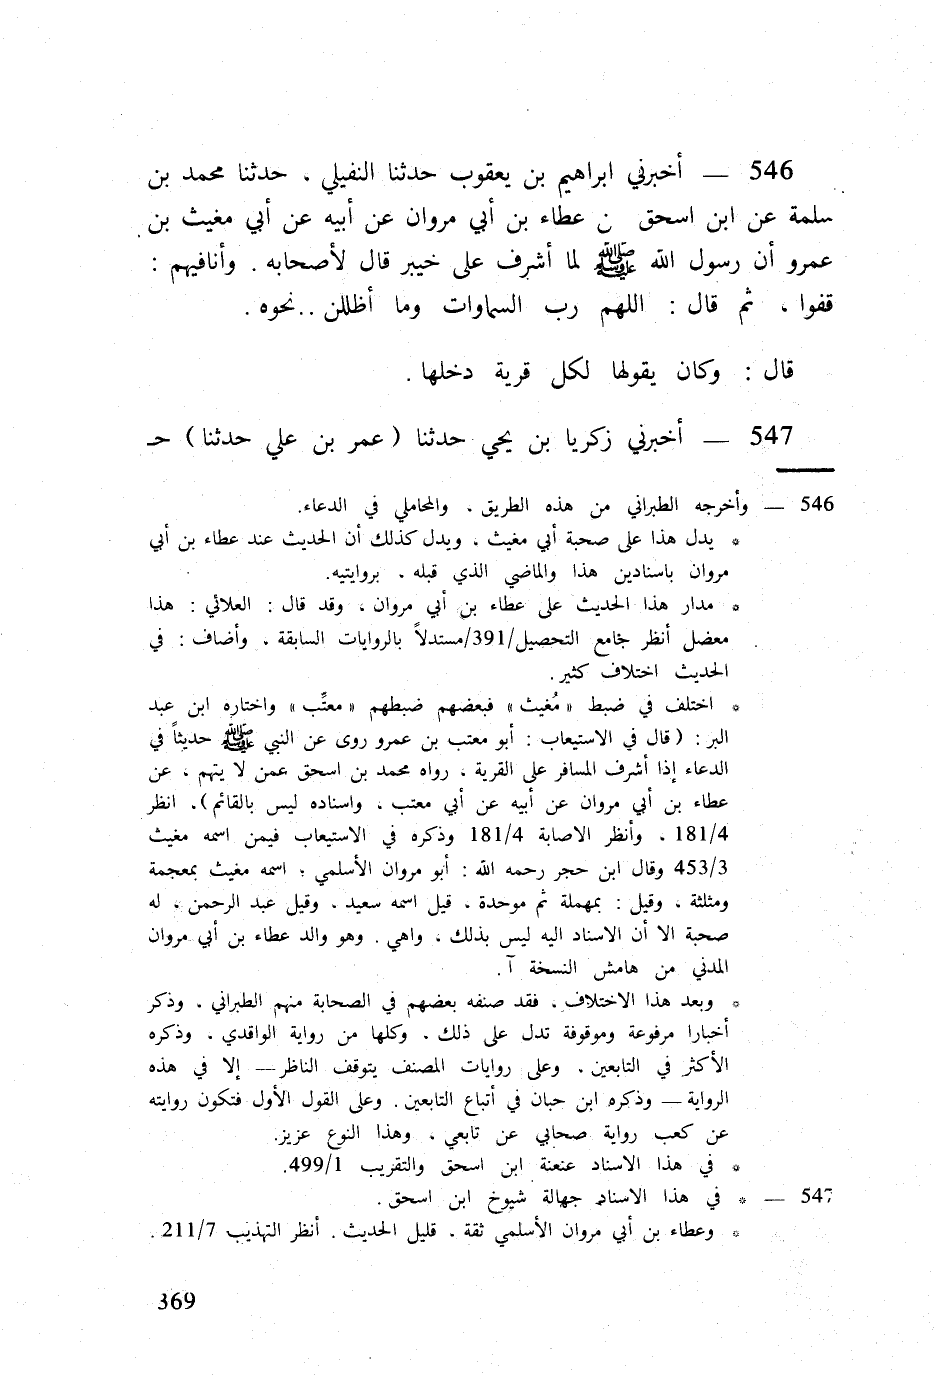 546 — أخبرني ابراهيم بن يعقوب حدثنا النفيلي ، حدثنا محمد بن
سلمة عن ابن اسحق ن عطاء بن أبي مروان عن أبيه عن أبي مغيث بن
عمرو أن رسول الله ﷺ لما أشرف على خيبر قال لأصحابه . وأنافيهم :
قفوا ، ثم قال : اللهم رب السماوات وما أظللن .. نحوه .
قال : وكان يقولها لكل قرية دخلها .
547 — أخبرني زكريا بن يحي حدثنا ( عمر بن علي حدثنا ) حـ
546 — وأخرجه الطبراني من هذه الطريق . والمحاملي في الدعاء.
* يدل هذا على صحبة أبي مغيث ، ويدل كذلك أن الحديث عند عطاء بن أبي
مروان باسنادين هذا والماضي الذي قبله . بروايتيه.
* مدار هذا الحديث على عطاء بن أبي مروان ، وقد قال : العلائي : هذا
معضل أنظر جامع التحصيل/391/مستدلاً بالروايات السابقة . وأضاف : في
الحديث اختلاف كثير .
* اختلف في ضبط « مُغيث » فبعضهم ضبطهم « معتِّب » واختاره ابن عبد
البر : ( قال في الاستيعاب : أبو معتب بن عمرو روى عن النبي ﷺ حديثاً في
الدعاء إذا أشرف المسافر على القرية ، رواه محمد بن اسحق عمن لا يتهم ، عن
عطاء بن أبي مروان عن أبيه عن أبي معتب ، واسناده ليس بالقائم ). انظر
181/4 ، وأنظر الاصابة 181/4 وذكره في الاستيعاب فيمن اسمه مغيث
453/3 وقال ابن حجر رحمه الله : أبو مروان الأسلمي ؛ اسمه مغيث بمعجمة
ومثلثة ، وقيل : بمهملة ثم موحدة . قيل اسمه سعيد . وقيل عبد الرحمن ، له
صحبة الا أن الاسناد اليه ليس بذلك ، واهي . وهو والد عطاء بن أبي مروان
المدني من هامش النسخة آ .
* وبعد هذا الاختلاف . فقد صنفه بعضهم في الصحابة منهم الطبراني . وذكر
أخبارا مرفوعة وموقوفة تدل على ذلك . وكلها من رواية الواقدي . وذكره
الأكثر في التابعين . وعلى روايات المصنف يتوقف الناظر — إلا في هذه
الرواية — وذكره ابن حبان في أتباع التابعين . وعلى القول الأول فتكون روايته
عن كعب رواية صحابي عن تابعي ، وهذا النوع عزيز.
* في هذا الاسناد عنعنة ابن اسحق والتقريب 499/1.
547 — * في هذا الاسناد جهالة شيوخ ابن اسحق .
* وعطاء بن أبي مروان الأسلمي ثقة . قليل الحديث . أنظر التهذيب 211/7 .
369